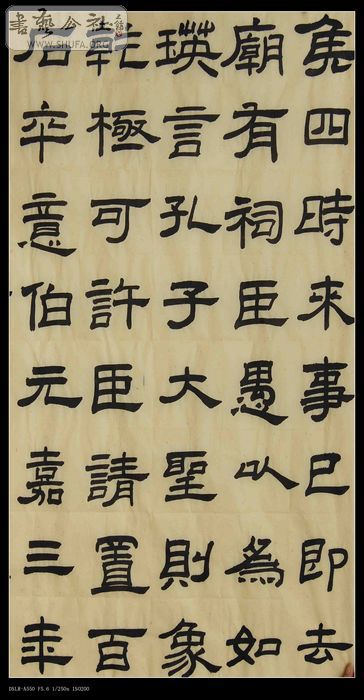 書藝公社
WWW.SHUFA.ORG
矦四時來事已即去
廟有祠臣愚以為如
瑛言孔子大聖則象
乾極可許臣請置百
石卒意伯元嘉三年
DSLR-A550 F5.6 1/250s ISO200